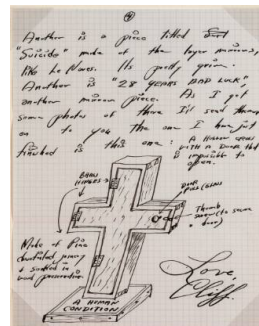 4
Another is a piece titled
"Suicide" made of the layer mirrors,
like Le Nores. Its pretty grim.
Another is "28 YEARS BAD LUCK",
another mirror piece. As I get
some photos of these I'll send them
on to you. The one I have just
finished is this one: A HUMAN CROSS
WITH A DOOR THAT
IS impossible to
open.
BRASS
HINGES
DOOR
Thumb
screw (to secure
door)
Made of Pine
& soaked in
wood preservative.
A HUMAN
CONDITION
Love,
Cliff.